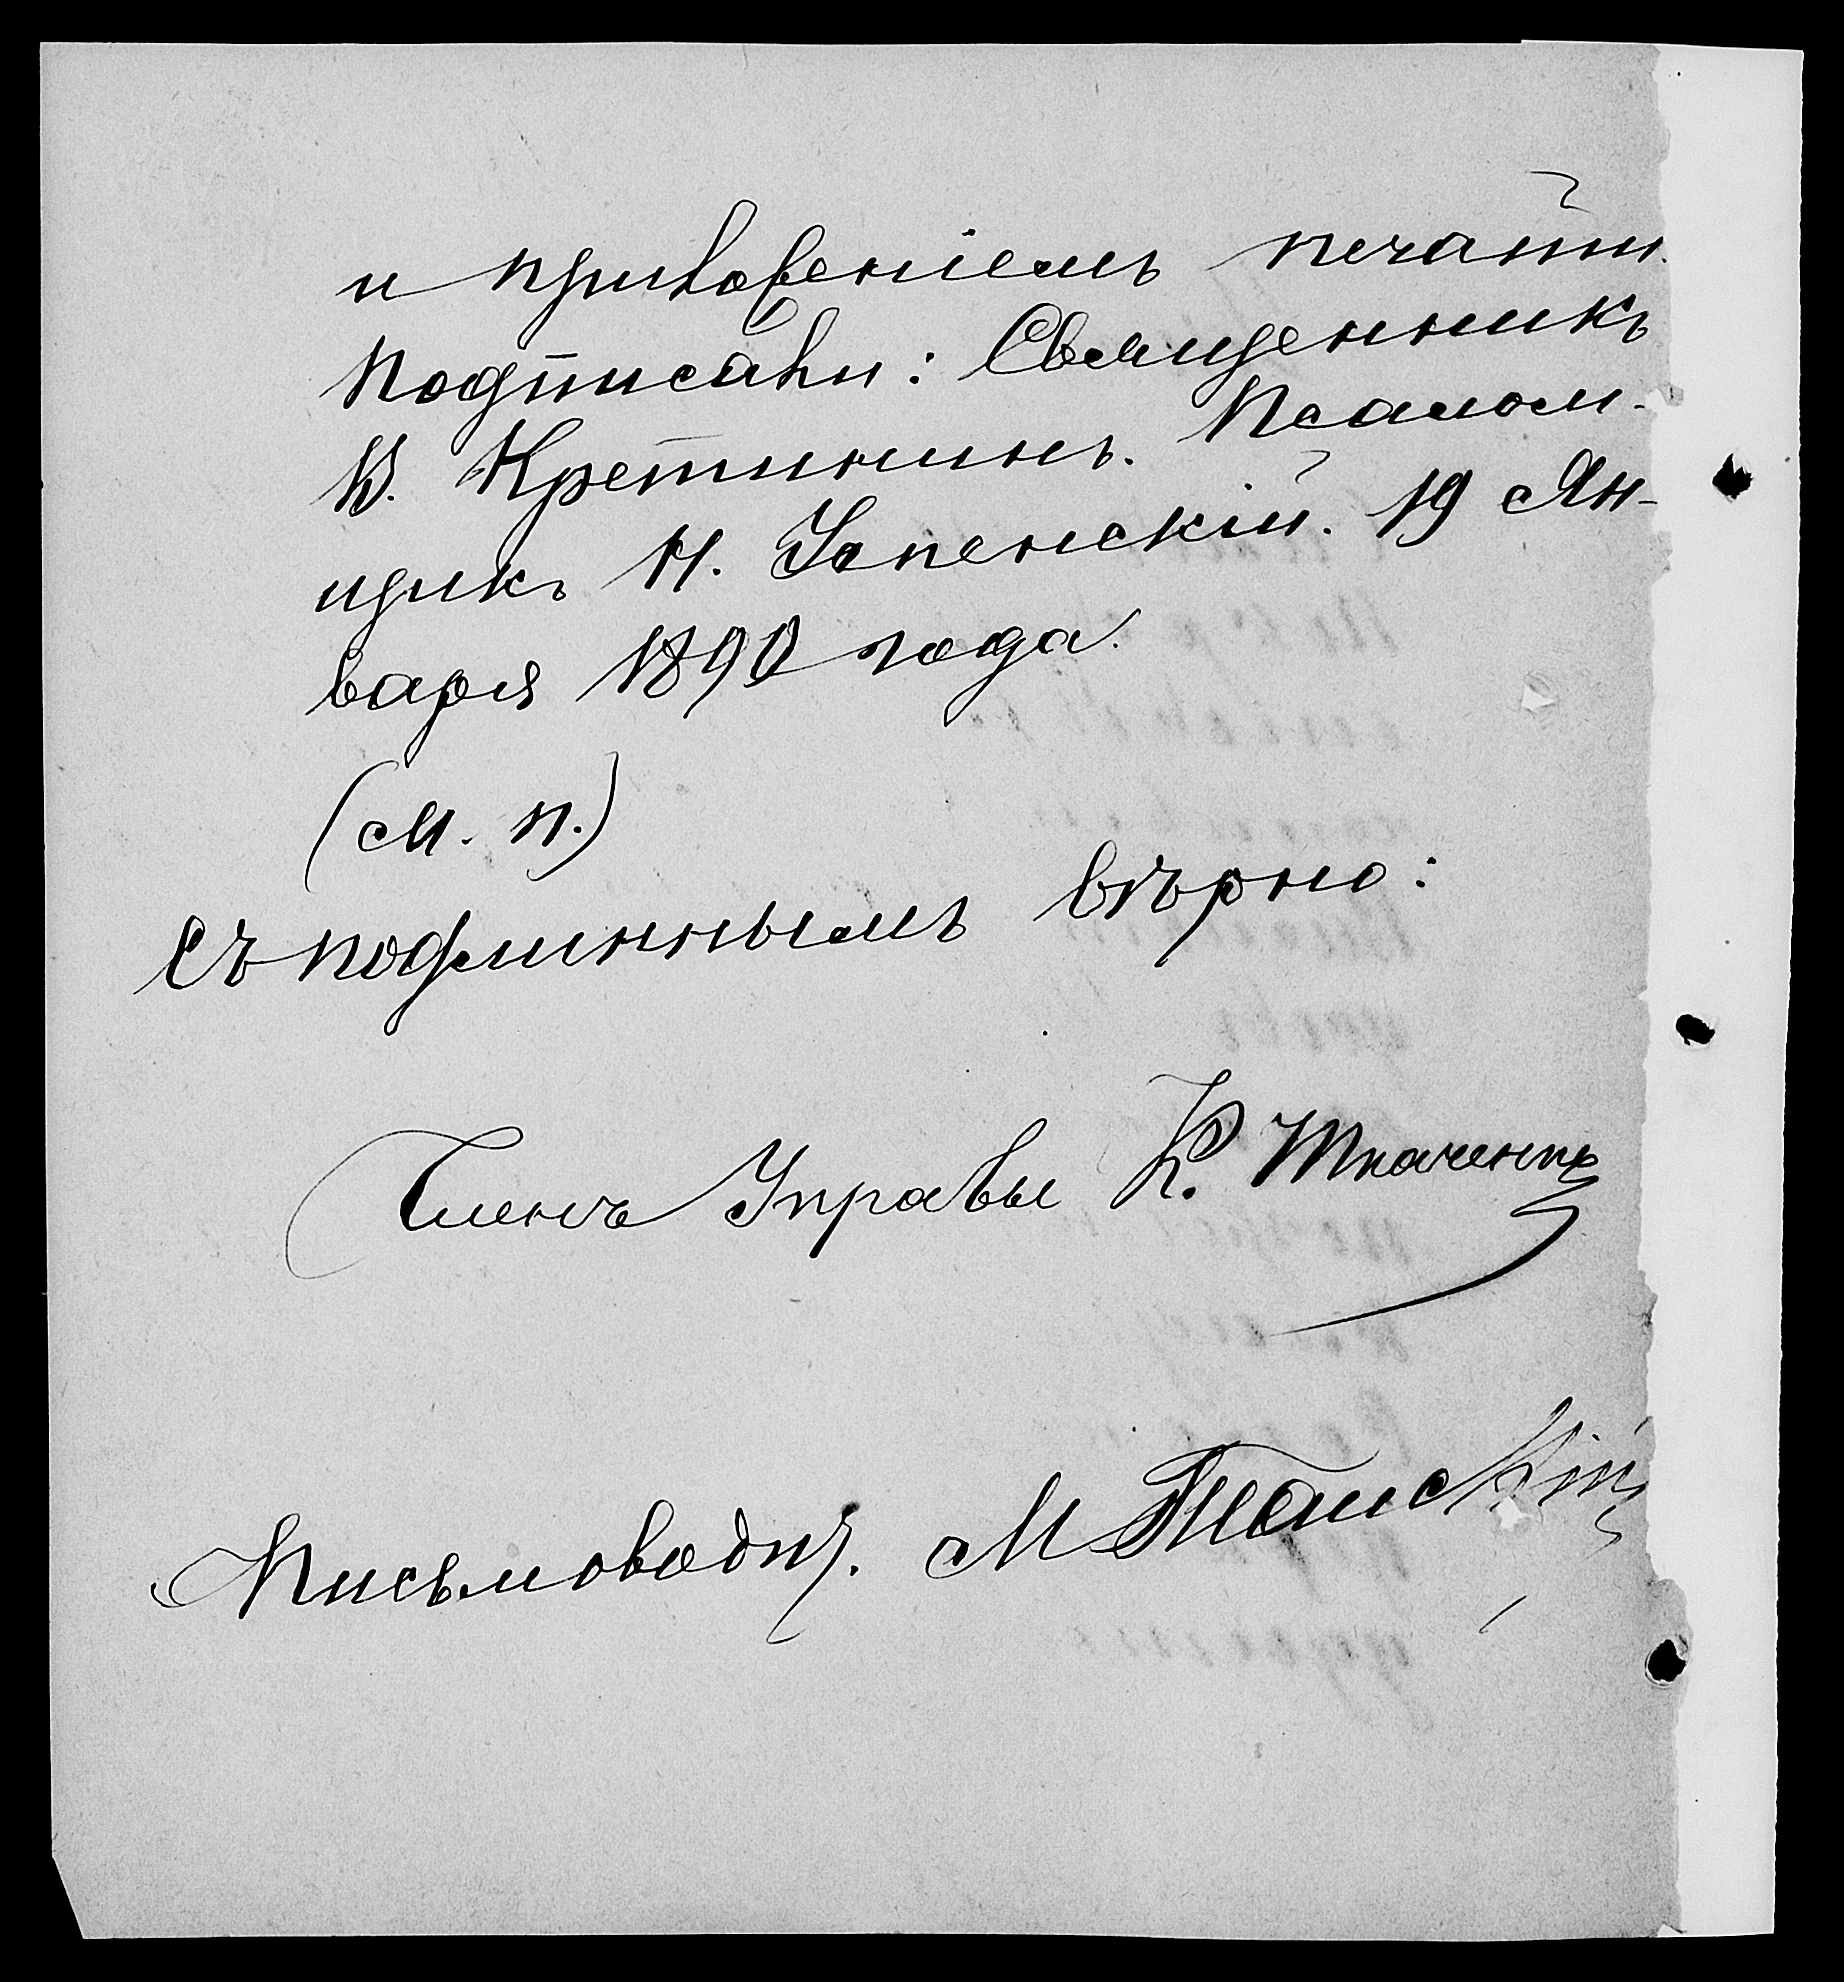 и приложеніемъ печати.
Подписали: Священникъ
В. Кретининъ. Псалом-
щикъ Н. Успенскій. 19 Ян-
варя 1890 года.
(М. П.)
Съ подлиннымъ вѣрно:
Членъ Управы К. Ткаченко
Письмоводит. М